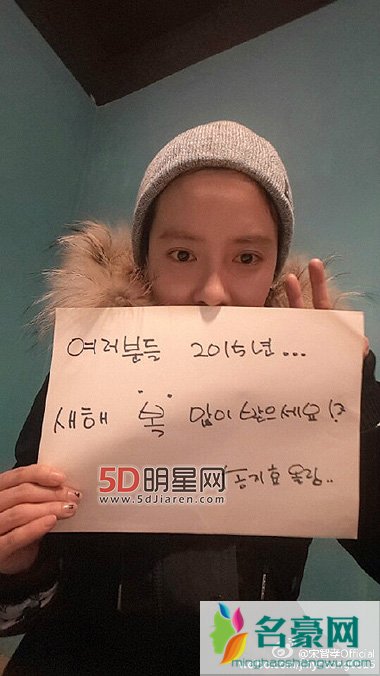 여러분들 2015년...
새해 "복" 많이 받으세요!?
송지효 올림..
5D明星网
www.5dJiaren.com
@宋智孝Official
名豪网
minghaoshangwu.com